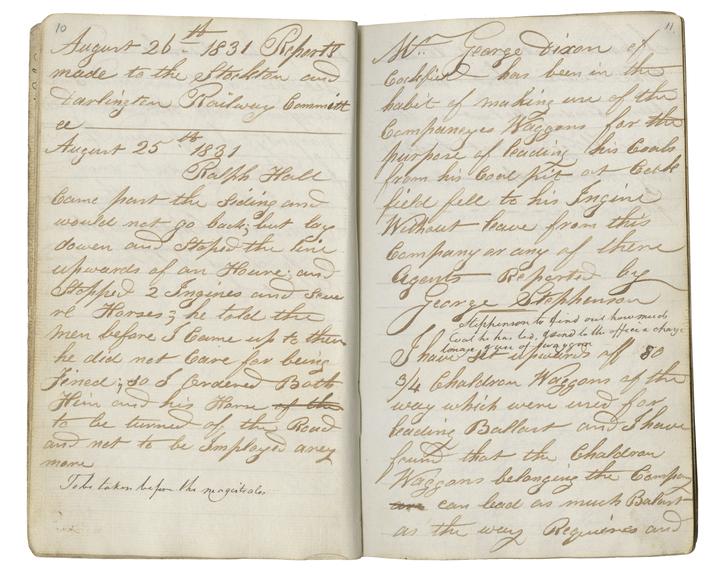 10
August 26th 1831 Reports
made to the Stockton and
Darlington Railway Committ
ee
August 25th 1831
Ralph Hall
Came past the Siding and
would not go back; but lay
dowen and Stoped the line
upwards of an Houre: and
Stopped 2 Ingines and Seve
rl Horses; he told the
men before I Came up to them
he did not Care for being
Fined; so I Ordered Both
Him and his Horse of the
to be turned of the Road
and not to be Imployed aney
more
To be taken before the magistrates
11
Mr George Dixon of
Cockfield has been in the
habit of making use of the
Companeyes Waggons for the
purpose of leading his Coals
from his Coal pit at Cock
field fell to his Ingine
Without leave from this
Company or any of there
Agents Reported by
George Stephenson
Stephenson to find out how much
Coal he has led, & send to the office a charge
tonage & use of waggon
I have upwards off 80
3/4 Chaldron Waggons of the
way which were used for
leading Ballast and I have
found that the Chaldron
Waggons belonging the Compan
can lead as much Ballast
as the way Requires and